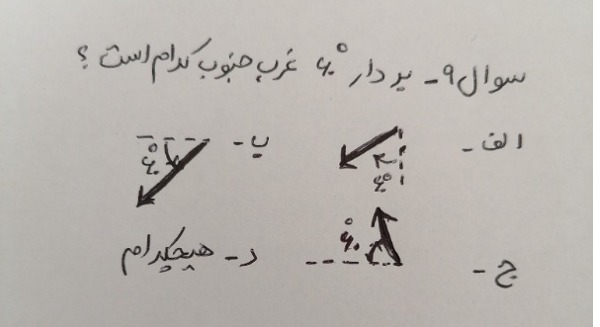 سوال ۹- بردار ۶۰° غرب جنوب کدام است؟
الف- ۶۰°
ب- ۶۰°
ج- ۶۰°
د- هیچکدام